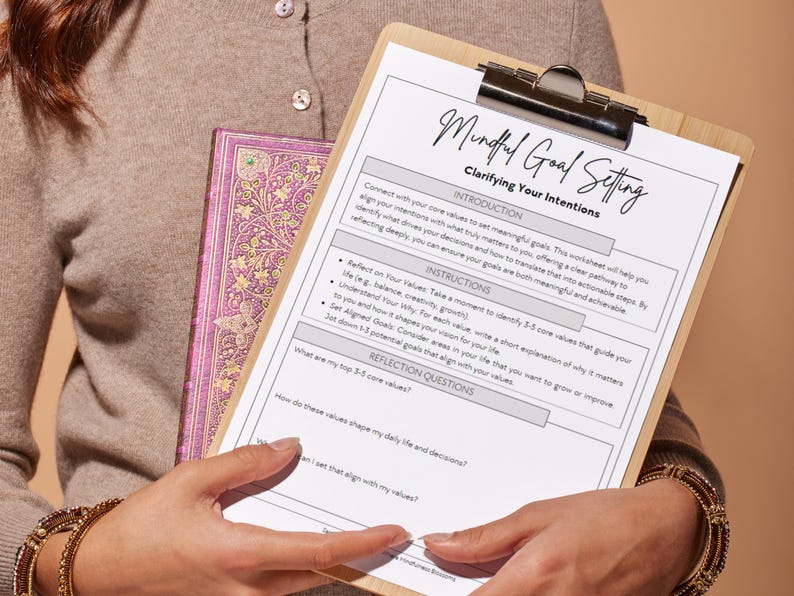 Mindful Goal Setting
Clarifying Your Intentions
INTRODUCTION
Connect with your core values to set meaningful goals. This worksheet will help you
align your intentions with what truly matters to you, offering a clear pathway to
identify what drives your decisions and how to translate that into actionable steps. By
reflecting deeply, you can ensure your goals are both meaningful and achievable.
INSTRUCTIONS
• Reflect on Your Values: Take a moment to identify 3-5 core values that guide your
life (e.g., balance, creativity, growth).
• Understand Your Why: For each value, write a short explanation of why it matters
to you and how it shapes your vision for your life.
• Set Aligned Goals: Consider areas in your life that you want to grow or improve.
Jot down 1-3 potential goals that align with your values.
REFLECTION QUESTIONS
What are my top 3-5 core values?
How do these values shape my daily life and decisions?
can I set that align with my values?
Mindfulness Blossoms